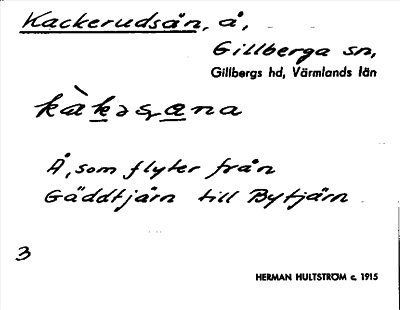 Kackerudsån, å,
Gillberga sn,
Gillbergs hd, Värmlands län
Å, som flyter från
Gäddtjärn till Bytjärn
3
HERMAN HULTSTRÖM c. 1915